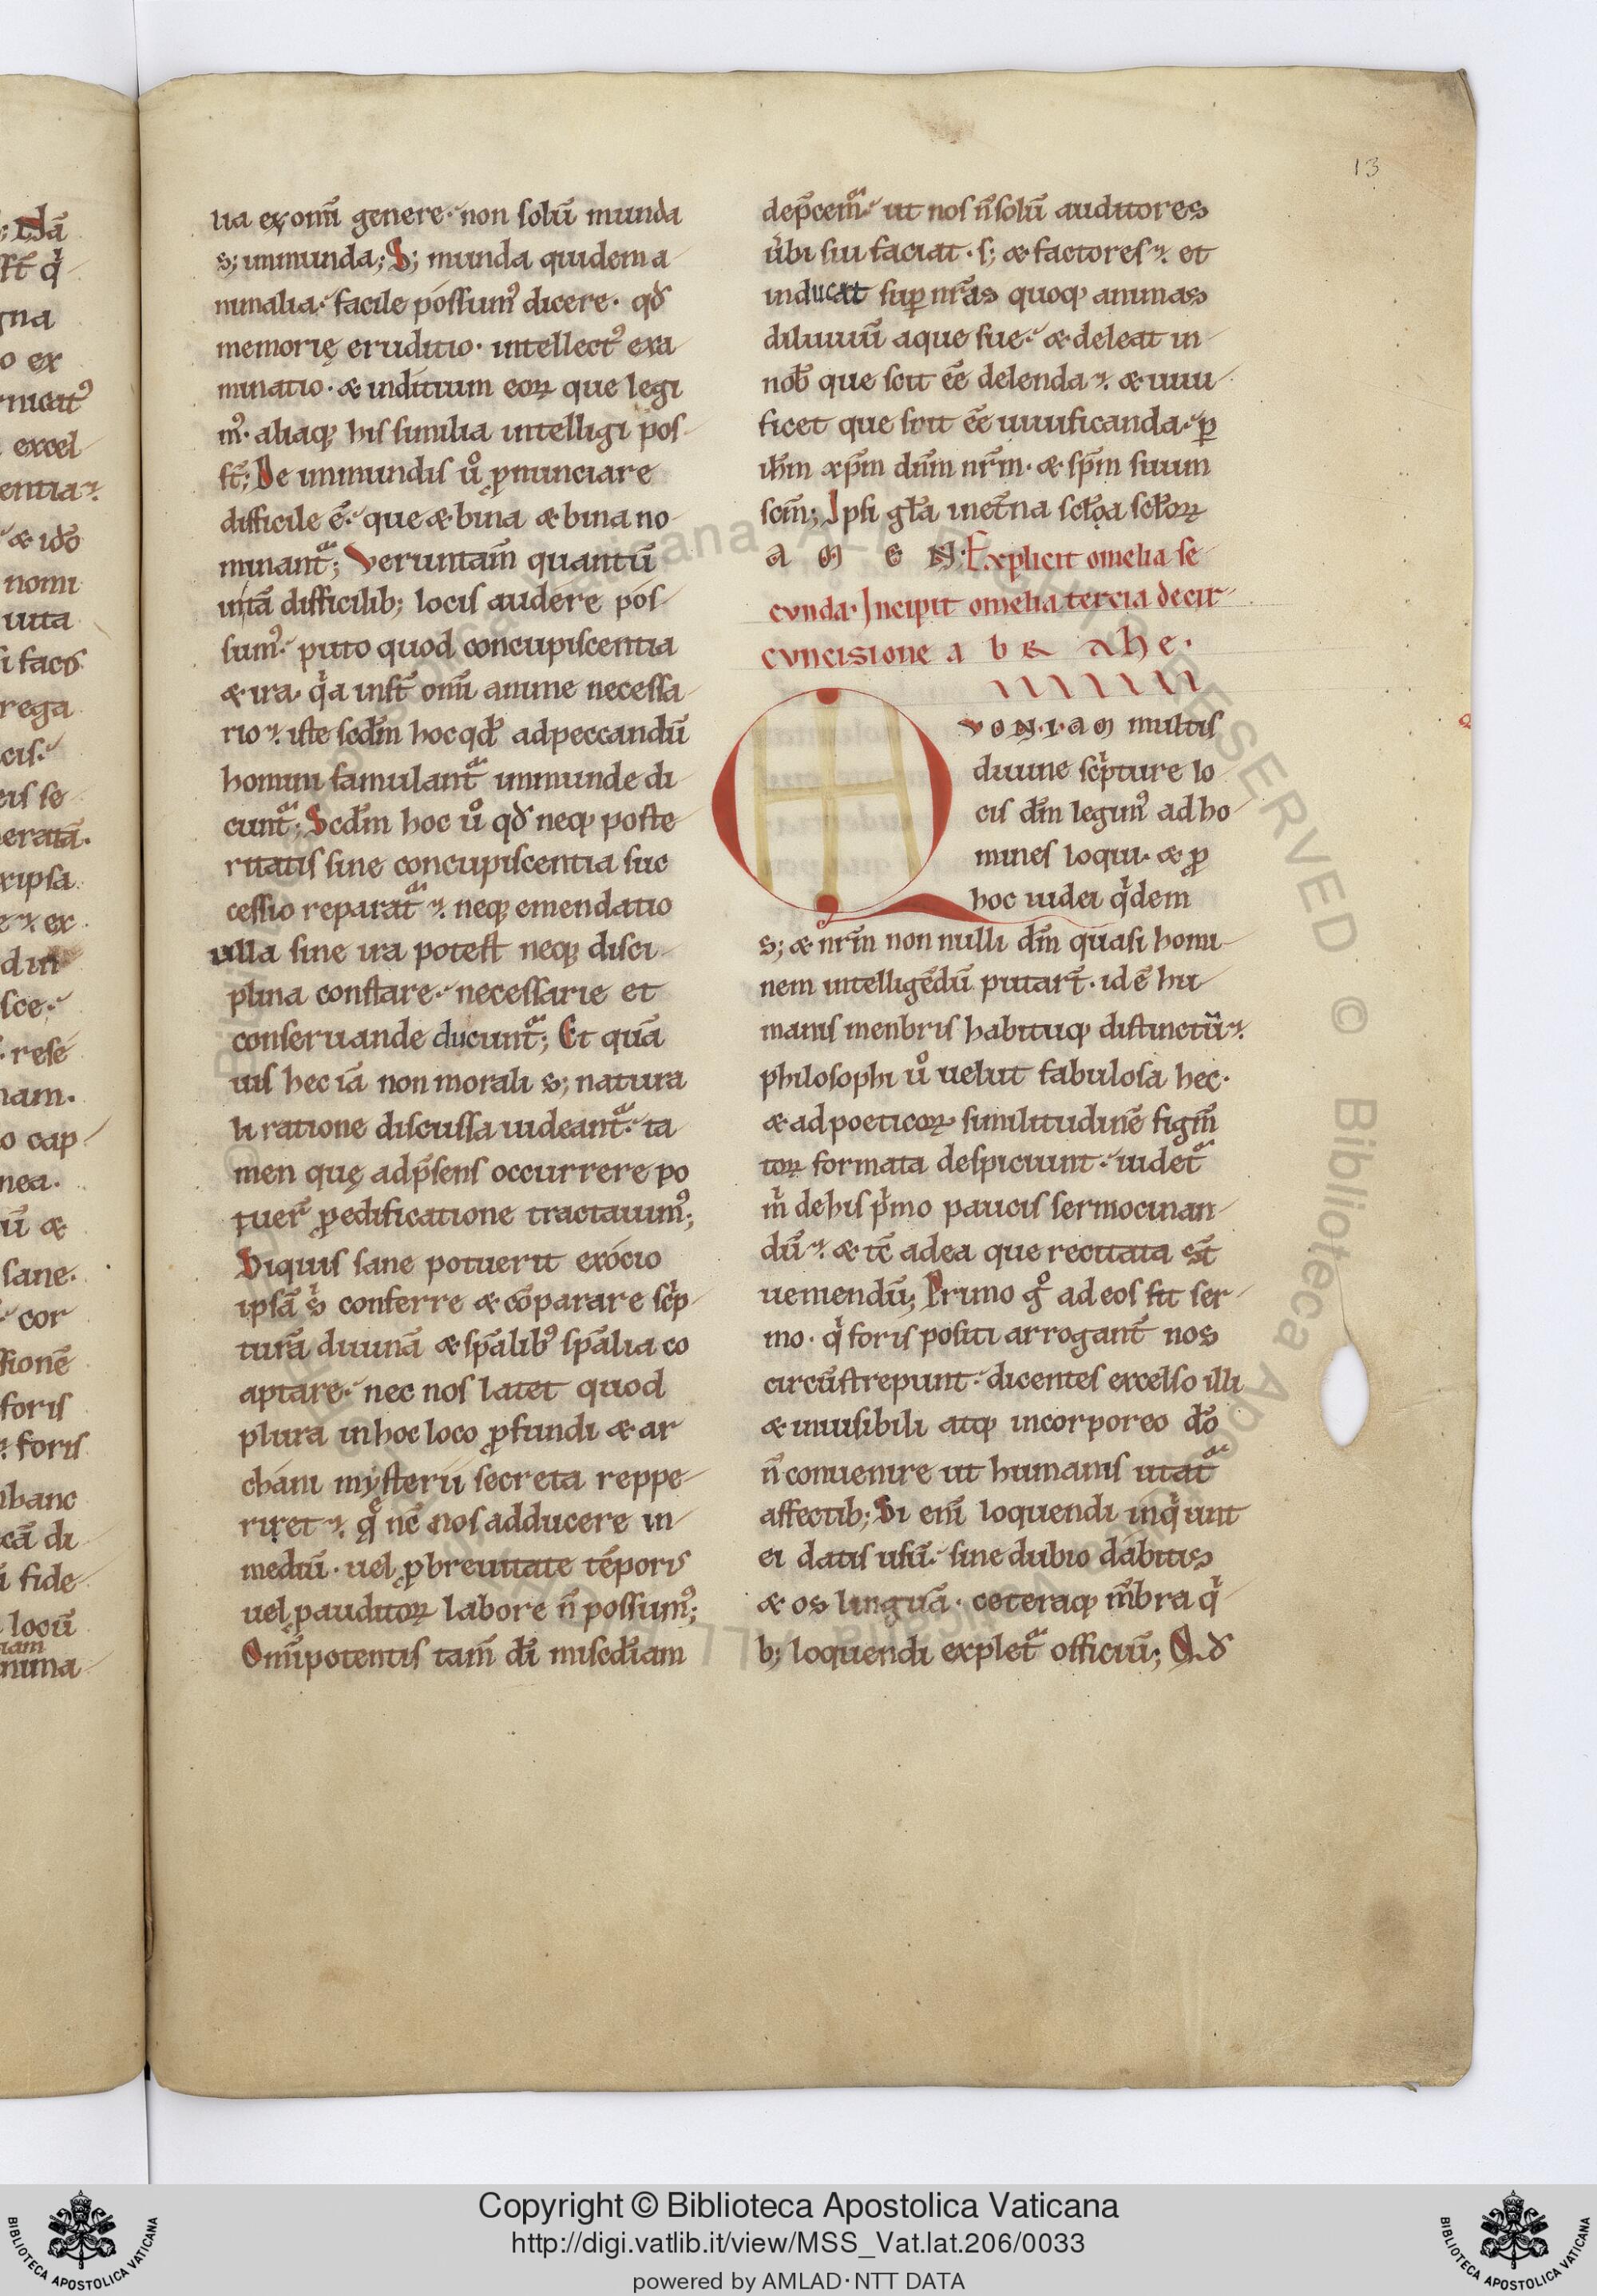 13
lia ex om̄i genere· non solū munda
s; inmunda; S; munda quidem a
nimalia· facile possum᾽ dicere· qd̄
memorię eruditio· intellect᾽ exa
minatio· & inditium eoꝝ que legi
m᾽· aliaq; his similia intelligi pos
st̄; De inmundis ůo ꝓnunciare
difficile ē· que & bina & bina no
minant̄ᵃ; Veruntam̄ quantū
intā difficilib; locis audere pos
sum᾽· puto quod concupiscentia
& ira· qͥa inst̄ om̄i anime necessa
rio· iste scd̄m hoc qd̄ ad peccandū
homini famulant̄ᵃ inmunde di
cunt̄ᵃ; Scd̄m hoc ůo qd̄ neq; poste
ritatis sine concupiscentia suc
cessio reparat̄ᵃ· neq; emendatio
ulla sine ira potest neq; disci
plina constare· necessarie et
conseruande ducunt̄ᵃ; Et quā
uis hec iā non morali s; natura
li ratione discussa uideant̄ᵃ· ta
men quę ad p̄sens occurrere po
tuer̄ ꝓ edificatione tractauim᾽;
Siquis sane potuerit ex ocio
ipsā s̄ conferre & cōparare scͥp
turā diuinā & sp̄alib᾽ sp̄alia co
aptare· nec nos latet quod
plura in hoc loco ꝓfundi & ar
chani mysterii secreta reppe
riret· qͤ nc̄ nos adducere in
mediū· uel ꝓ breuitate tēporis
uel ꝓ auditoꝝ labore n̄ possum᾽;
Om̄ipotentis tam̄ dī misc̄diam
dep̄cem̄ᵃ· ut nos n̄ solū auditores
u̇bi sui faciat· s; & factores· et
inducat suꝑ nr̄as quoq; animas
diluuiū aque sue· & deleat in
nob̄ que scit eē delenda· & uiui
ficet que scit eē uiuificanda· ꝑ
ih̄m xp̄m dn̄m nr̄m· & sp̄m suum
scm̄; Ipsi gl̄a in et̄na scl̄oꝝ scl̄oꝝ
A M E N· Explicit omelia se
cvnda· Incipit omelia tercia de cir
cvncisione a b r ahe·
QVONIAM multis
diuine scͥpture lo
cis dm̄ legim᾽ ad ho
mines loqui· & ꝓ
hoc iudei qͥdem
s; & nr̄m non nulli dm̄ quasi homi
nem intelligēdū putar̄t· id ē hu
manis menbris habituq; distinctū·
philosophi ůo uelut fabulosa hec·
& ad poeticoꝝ similitudinē figm̄
toꝝ formata despiciunt· uidet̄ᵃ
mͥ de his pͥmo paucis sermocinan
dū· & tc̄ ad ea que recitata st̄
ueniendū; Primo gͦ ad eos fit ser
mo· qͥ foris positi arrogant̄ nos
circūstrepunt· dicentes excelso illi
& inuisibili atq; incorporeo dō
n̄ conuenire ut humanis utat̄ᵃ
affectib; Si eni᷈ loquendi inqͥunt
ei datis usū· sine dubio dabitis
& os linguā· ceteraq; m̄bra qͥ
b; loquendi explet̄ᵃ officiū; Qd̄
Copyright © Biblioteca Apostolica Vaticana
http://digi.vatlib.it/view/MSS_Vat.lat.206/0033
powered by AMLAD·NTT DATA
BIBLIOTECA APOSTOLICA VATICANA
BIBLIOTECA APOSTOLICA VATICANA